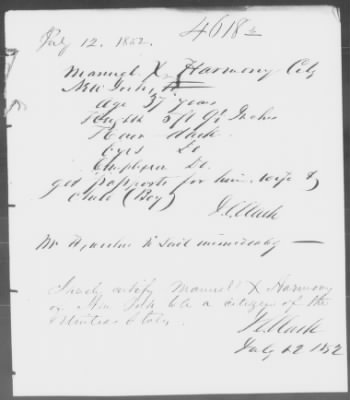 July 12, 1852.
4618
Manuel X. Harmony City
New York,
Age 37 years
Height 5 ft 9½ Inches
Hair dark
Eyes Do
Complexn Do.
get passports for him, wife &
Child (Boy)
J. C. Clark
Mr H, to sail immediately —
I certify Manuel X Harmony
of New York to be a citizen of the
United States.
J. C. Clark
July 12 1852